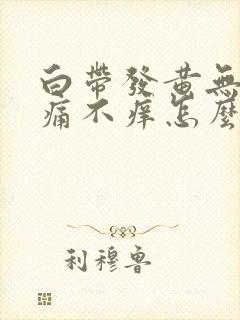 白帶發黃無
痛不痒怎麼
利穆鲁